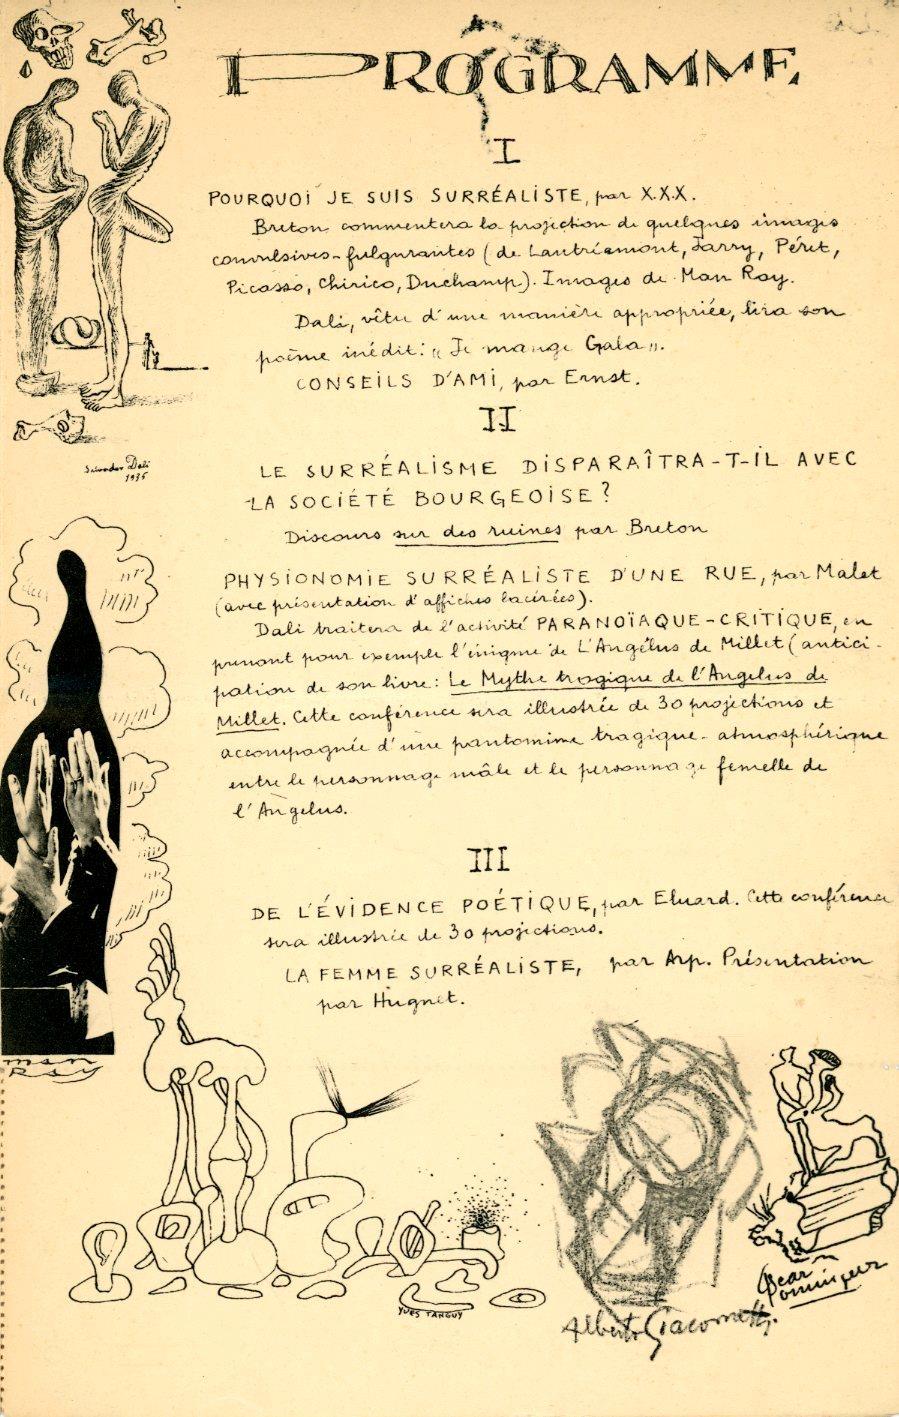 PROGRAMME
I
POURQUOI JE SUIS SURRÉALISTE, par X.X.X.
Breton commentera la projection de quelques images
convulsives-fulgurantes (de Lautréamont, Jarry, Péret,
Picasso, Chirico, Duchamp). Images de Man Ray.
Dali, vêtu d'une manière appropriée, lira son
poème inédit: "Je mange Gala".
CONSEILS D'AMI, par Ernst.
II
LE SURRÉALISME DISPARAÎTRA-T-IL AVEC
LA SOCIÉTÉ BOURGEOISE?
Discours sur des ruines par Breton
PHYSIONOMIE SURRÉALISTE D'UNE RUE, par Malet
(avec présentation d'affiches lacérées).
Dali traitera de l'activité PARANOÏAQUE-CRITIQUE, en
prenant pour exemple l'énigme de L'Angélus de Millet (antici-
pation de son livre: Le Mythe tragique de l'Angelus de
Millet. Cette conférence sera illustrée de 30 projections et
accompagnée d'une pantomime tragique-atmosphérique
entre le personnage mâle et le personnage femelle de
l'Angelus.
III
DE L'ÉVIDENCE POÉTIQUE, par Eluard. Cette conférence
sera illustrée de 30 projections.
LA FEMME SURRÉALISTE, par Arp. Présentation
par Hugnet.
Salvador Dali
1935
man
Ray
YVES TANGUY
Alberto Giacometti.
Oscar
Dominguez